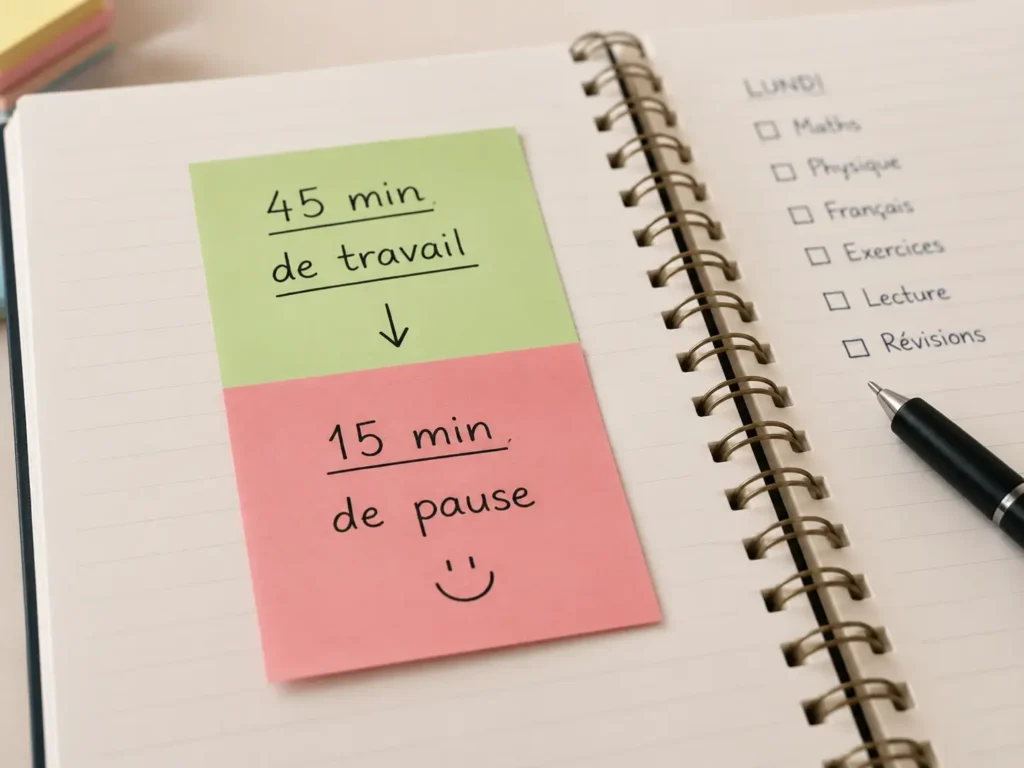 45 min
de travail
↓
15 min
de pause
LUNDI
☐ Maths
☐ Physique
☐ Français
☐ Exercices
☐ Lecture
☐ Révisions